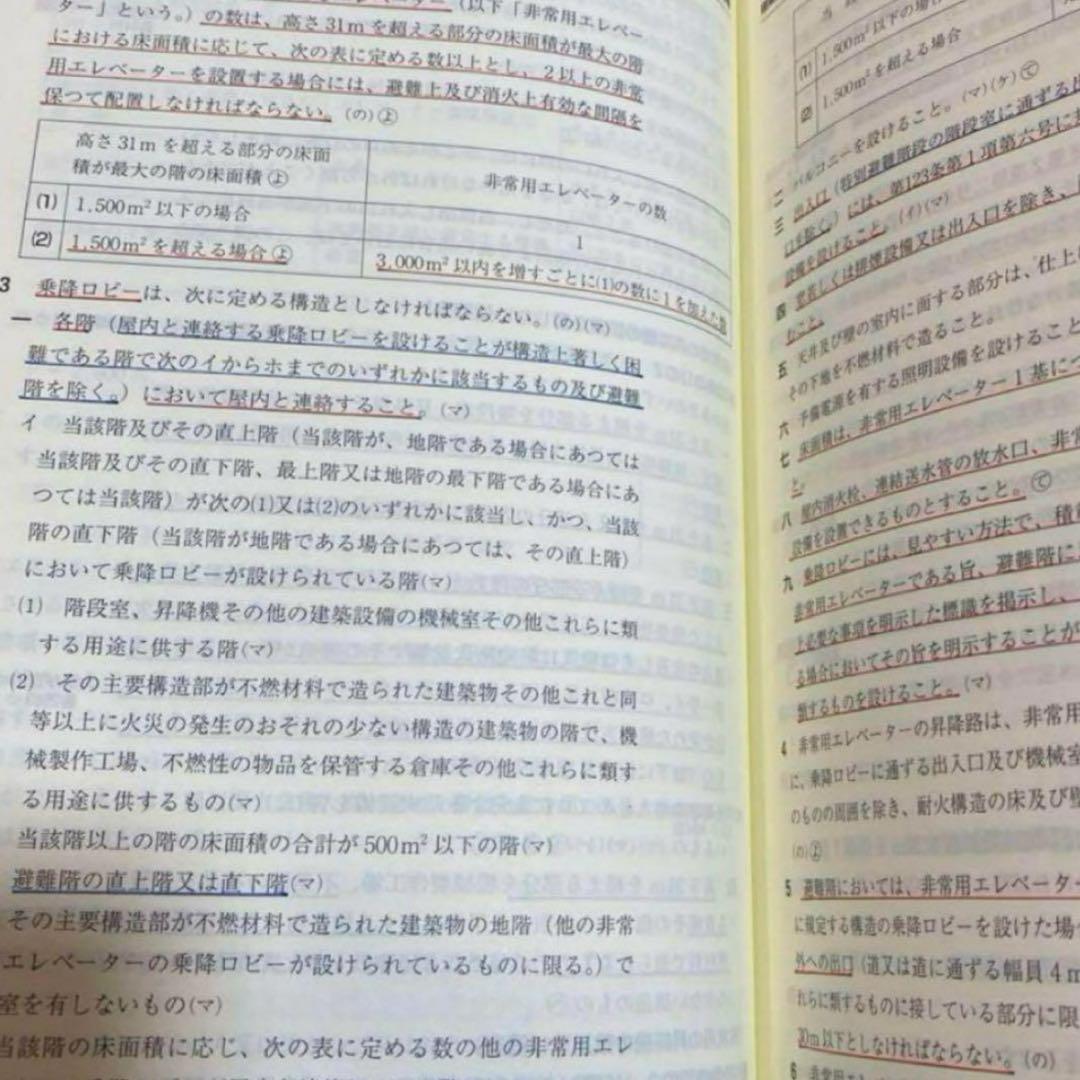 ター」という。）の数は、高さ31mを超える部分の床面積が最大の階
（以下「非常用エレベー
における床面積に応じて、次の表に定める数以上とし、2以上の非常
用エレベーターを設置する場合には、避難上及び消火上有効な間隔を
保つて配置しなければならない。(の)㋵
高さ31mを超える部分の床面
積が最大の階の床面積㋵
非常用エレベーターの数
(1) 1,500m²以下の場合
1
(2) 1,500m²を超える場合㋵
3,000m²以内を増すごとに(1)の数に1を加えた数
3 乗降ロビーは、次に定める構造としなければならない。(の)(マ)
一 各階（屋内と連絡する乗降ロビーを設けることが構造上著しく困
難である階で次のイからホまでのいずれかに該当するもの及び避難
階を除く。）において屋内と連絡すること。(マ)
イ 当該階及びその直上階（当該階が、地階である場合にあつては
当該階及びその直下階、最上階又は地階の最下階である場合にあ
つては当該階）が次の(1)又は(2)のいずれかに該当し、かつ、当該
階の直下階（当該階が地階である場合にあつては、その直上階）
において乗降ロビーが設けられている階(マ)
(1) 階段室、昇降機その他の建築設備の機械室その他これらに類
する用途に供する階(マ)
(2) その主要構造部が不燃材料で造られた建築物その他これと同
等以上に火災の発生のおそれの少ない構造の建築物の階で、機
械製作工場、不燃性の物品を保管する倉庫その他これらに類す
る用途に供するもの(マ)
当該階以上の階の床面積の合計が500m²以下の階(マ)
避難階の直上階又は直下階(マ)
その主要構造部が不燃材料で造られた建築物の地階（他の非常
エレベーターの乗降ロビーが設けられているものに限る。）で
室を有しないもの(マ)
当該階の床面積に応じ、次の表に定める数の他の非常用エレ
(1) 1,500m²以下の場合
(2) 1,500m²を超える場合
二 バルコニーを設けること。(マ)(ケ)㋢
三 出入口（特別避難階段の階段室に通ずる出
口を除く。）には、第123条第1項第六号に
設備を設けること。(イ)(マ)
四 窓若しくは排煙設備又は出入口を除き、
むこと。
五 天井及び壁の室内に面する部分は、仕上
その下地を不燃材料で造ること。
六 予備電源を有する照明設備を設けること
七 床面積は、非常用エレベーター1基につ
と。
八 屋内消火栓、連結送水管の放水口、非常
設備を設置できるものとすること。㋢
九 乗降ロビーには、見やすい方法で、積載
非常用エレベーターである旨、避難階に
上必要な事項を明示した標識を掲示し、
る場合においてその旨を明示することが
類するものを設けること。(マ)
4 非常用エレベーターの昇降路は、非常用
に、乗降ロビーに通ずる出入口及び機械室
のものの周囲を除き、耐火構造の床及び壁
(の)㋵
5 避難階においては、非常用エレベーター
に規定する構造の乗降ロビーを設けた場
外への出口（道又は道に通ずる幅員4m
れらに類するものに接している部分に限
30m以下としなければならない。(の)
6 非常用エレベーター